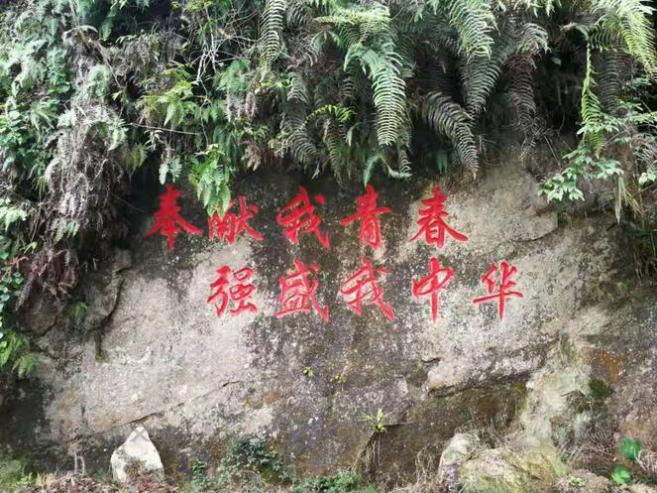 奉献我青春
强盛我中华